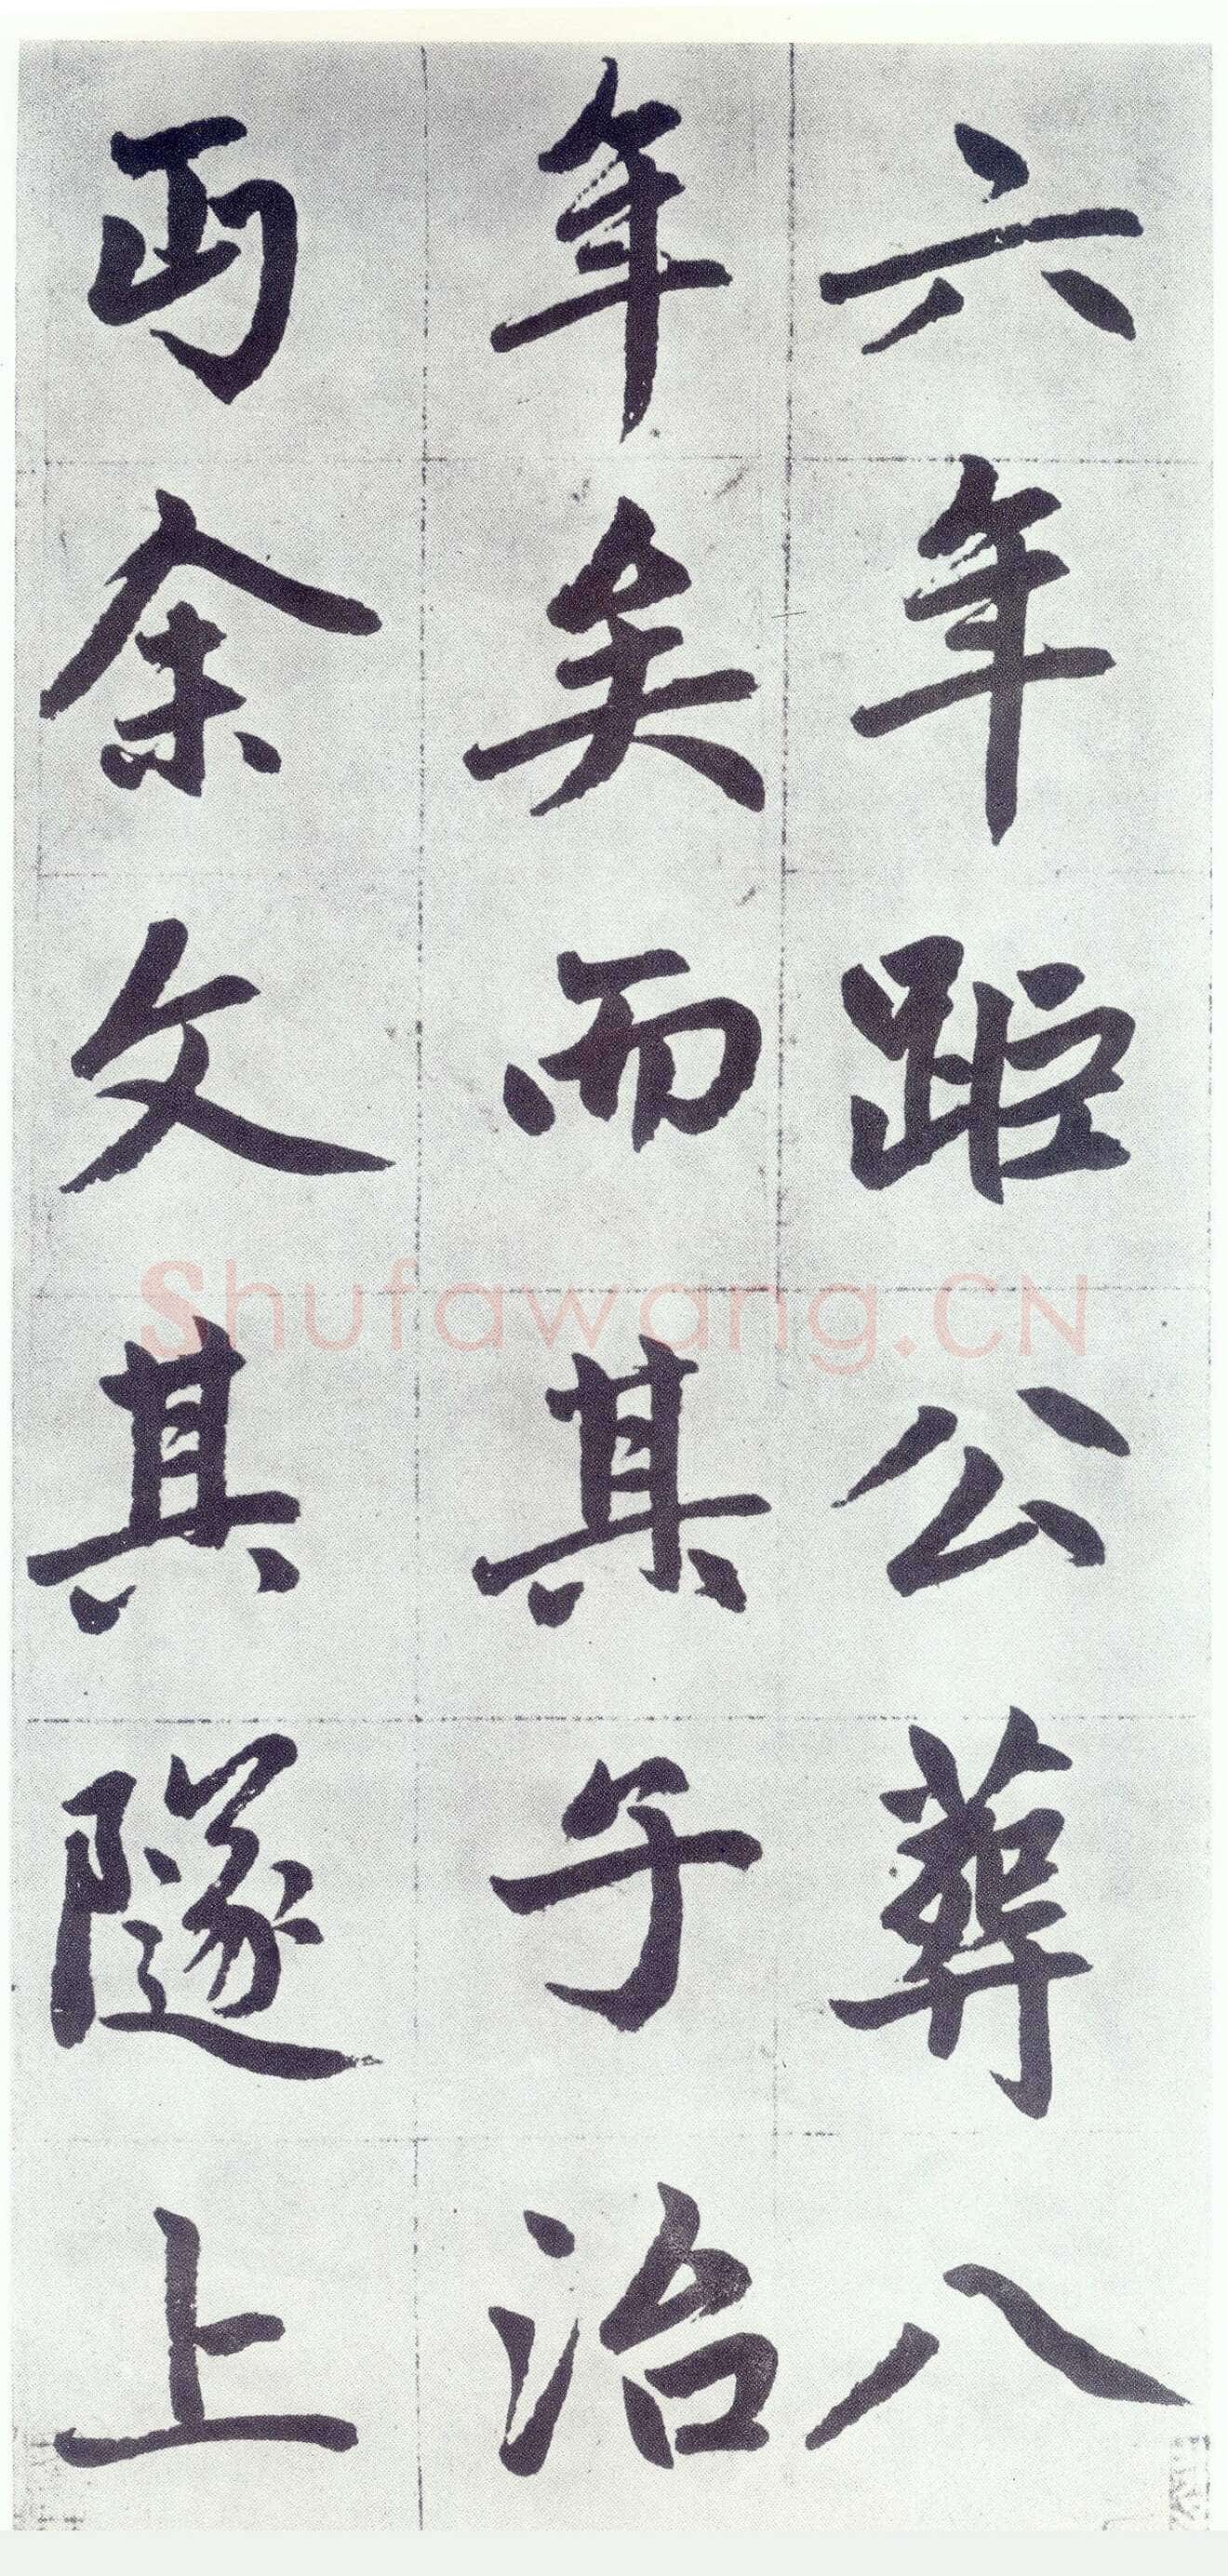 六年距公葬八
年矣而其子治
丐余文其隧上
Shufawang.CN